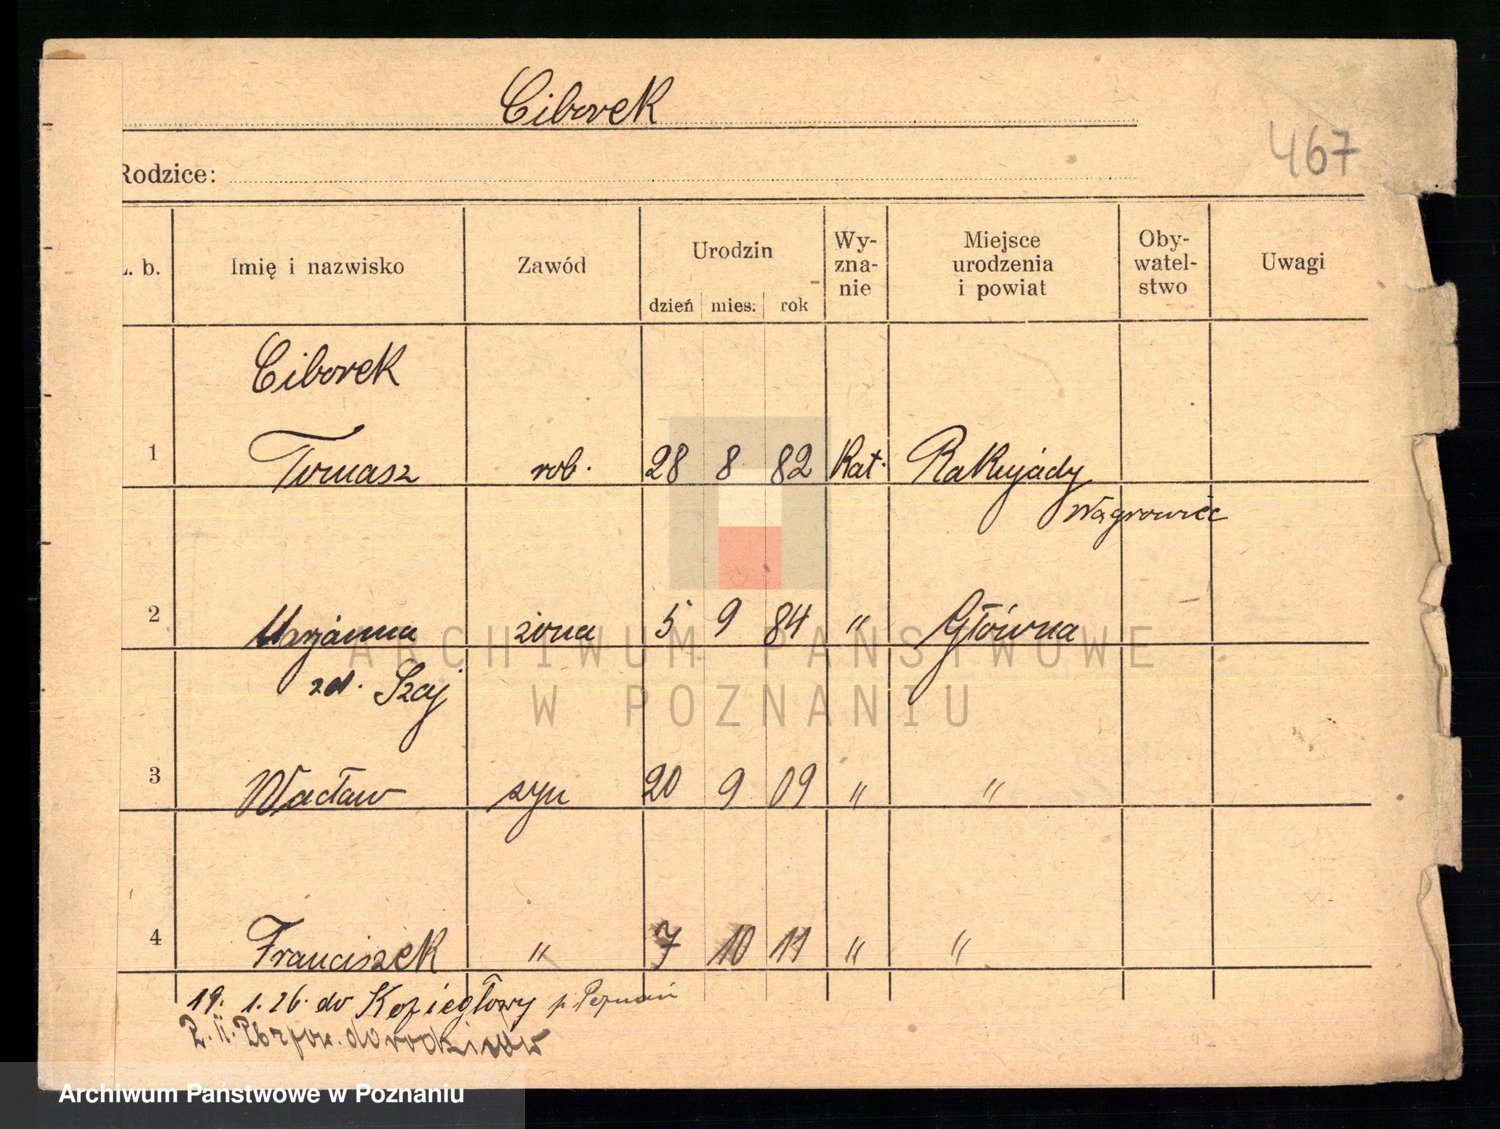 Ciborek
467
Rodzice:
L. b. Imię i nazwisko Zawód Urodzin dzień mies. rok Wy-zna-nie Miejsce urodzenia i powiat Oby-watel-stwo Uwagi
Ciborek
1 Tomasz rob. 28 8 82 Kat. Rakujady
Wągrowiec
2 Maryanna żona 5 9 84 " Główna
zd. Szaj
3 Wacław syn 20 9 09 " "
4 Franciszek " 7 10 11 " "
19. 1. 26. do Koziegłowy p. Poznań
do rodziców
ARCHIWUM PAŃSTWOWE
W POZNANIU
Archiwum Państwowe w Poznaniu